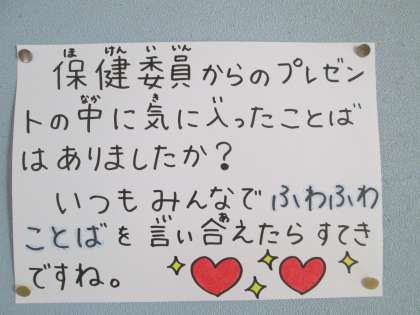 保健委員からのプレゼン
トの中に気に入ったことば
はありましたか?
いつもみんなでふわふわ
ことばを言い合えたらすてき
ですね。